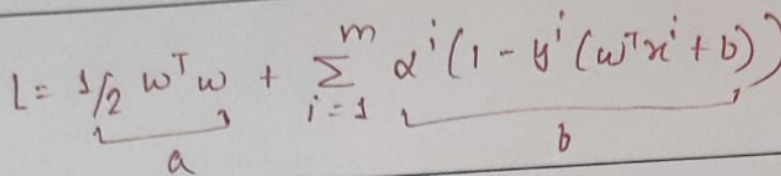 L = 1/2 wᵀw + Σ_{i=1}^{m} αⁱ(1 - yⁱ(wᵀxⁱ + b))
a b